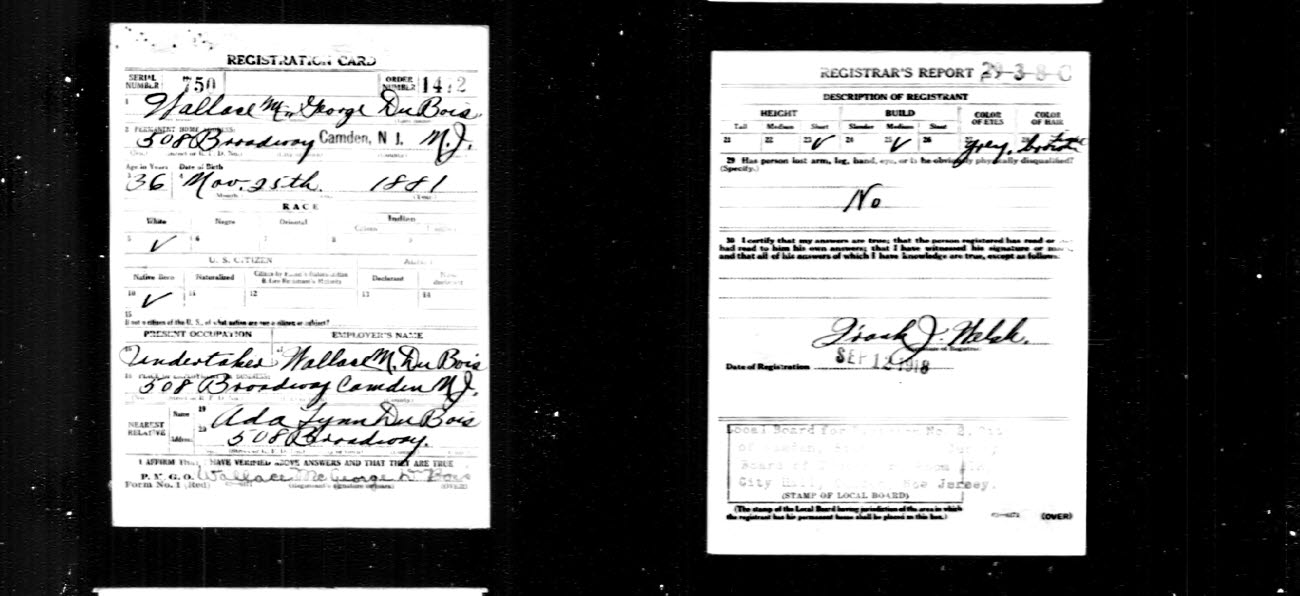 REGISTRATION CARD
SERIAL NUMBER 750 ORDER NUMBER 1412
1 Wallace Mc George Du Bois
2 PERMANENT HOME ADDRESS:
508 Broadway Camden, N J. N.J.
Age in Years Date of Birth
3 36 4 Nov. 25th. 1881
(Month.) (Year.)
RACE
White Negro Oriental Indian
Citizen
5 ✓ 6 7 8 9
U. S. CITIZEN
Native Born Naturalized Citizen by Father's Naturalization Before Registrant's Majority Declarant Non-declarant
10 ✓ 11 12 13 14
15
If not a citizen of the U. S., of what nation are you a citizen or subject?
PRESENT OCCUPATION EMPLOYER'S NAME
16 Undertaker 17 Wallace M. Du Bois
18
508 Broadway Camden N.J.
NEAREST RELATIVE Name 19 Ada Lynn Du Bois
Address 20 508 Broadway.
I AFFIRM THAT I HAVE VERIFIED ABOVE ANSWERS AND THAT THEY ARE TRUE
P. M. G. O. Wallace Mc George Du Bois
Form No. 1 (Red) (Registrant's signature or mark) (OVER)
REGISTRAR'S REPORT 29-3-8-C
DESCRIPTION OF REGISTRANT
HEIGHT BUILD COLOR OF EYES COLOR OF HAIR
Tall Medium Short Slender Medium Stout
21 22 23 ✓ 24 25 ✓ 26 27 Grey 28
29 Has person lost arm, leg, hand, eye, or is he obviously physically disqualified?
(Specify.)
No
30 I certify that my answers are true; that the person registered has read or
had read to him his own answers; that I have witnessed his signature or
and that all of his answers of which I have knowledge are true, except as follows:
Frank J. Welsh.
Date of Registration SEP 12 1918
Local Board for No. 2, City
of Camden,
Board of Room
City Hall, Camden, New Jersey.
(STAMP OF LOCAL BOARD)
(The stamp of the Local Board having jurisdiction of the area in which
the registrant has his permanent home shall be placed in this box.)
(OVER)